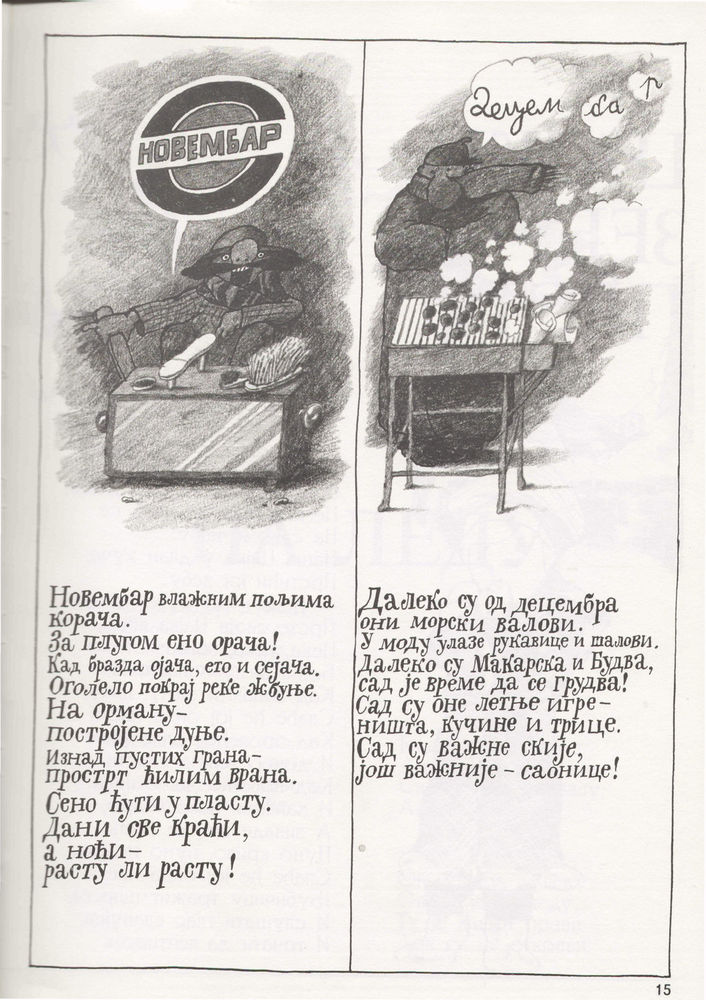 НОВЕМБАР
Децем ба р
Новембар влажним пољима
корача.
За плугом ено орача!
Кад бразда ојача, ето и сејача.
Оголело покрај реке жбуње.
На орману–
постројене дуње.
Изнад пустих грана–
прострт ћилим врана.
Сено ћути у пласту.
Дани све краћи,
а ноћи–
расту ли расту!
Далеко су од децембра
они морски валови.
У моду улазе рукавице и шалови.
Далеко су Макарска и Будва,
сад је време да се грудва!
Сад су оне летње игре–
ништа, кучине и трице.
Сад су важне скије,
још важније – саонице!
15